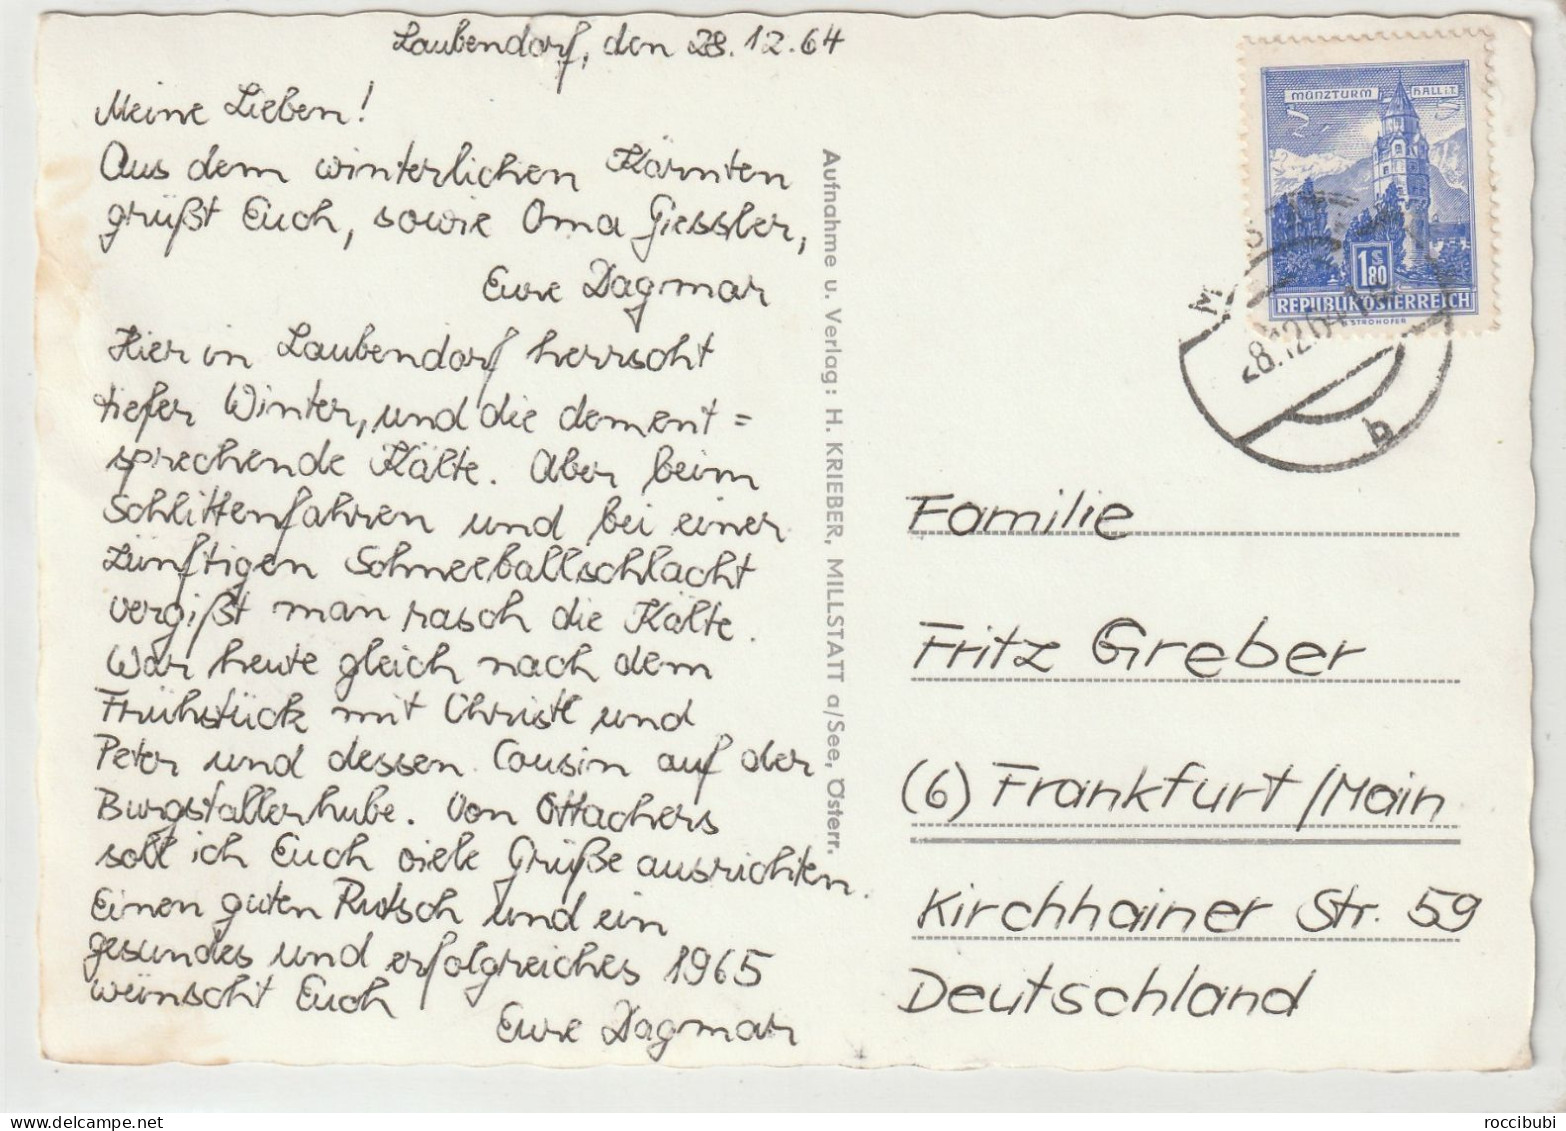 Laubendorf, den 28.12.64
Meine Lieben!
Aus dem winterlichen Kärnten
grüßt Euch, sowie Oma Giessler,
Eure Dagmar
Hier in Laubendorf herrscht
tiefer Winter, und die dement=
sprechende Kälte. Aber beim
Schlittenfahren und bei einer
zünftigen Schneeballschlacht
vergißt man rasch die Kälte.
War heute gleich nach dem
Frühstück mit Christl und
Peter und dessen Cousin auf der
Burgstallerhube. Von Ottachers
soll ich Euch viele Grüße ausrichten.
Einen guten Rutsch und ein
gesundes und erfolgreiches 1965
wünscht Euch
Eure Dagmar
Aufnahme u. Verlag: H. KRIEBER, MILLSTATT a/See, Österr.
MÜNZTURM HALL i.T.
1 S 80
REPUBLIK ÖSTERREICH
STROHOFER
28.12.64
b
Familie
Fritz Greber
(6) Frankfurt/Main
Kirchhainer Str. 59
Deutschland
roccibubi
delcampe.net